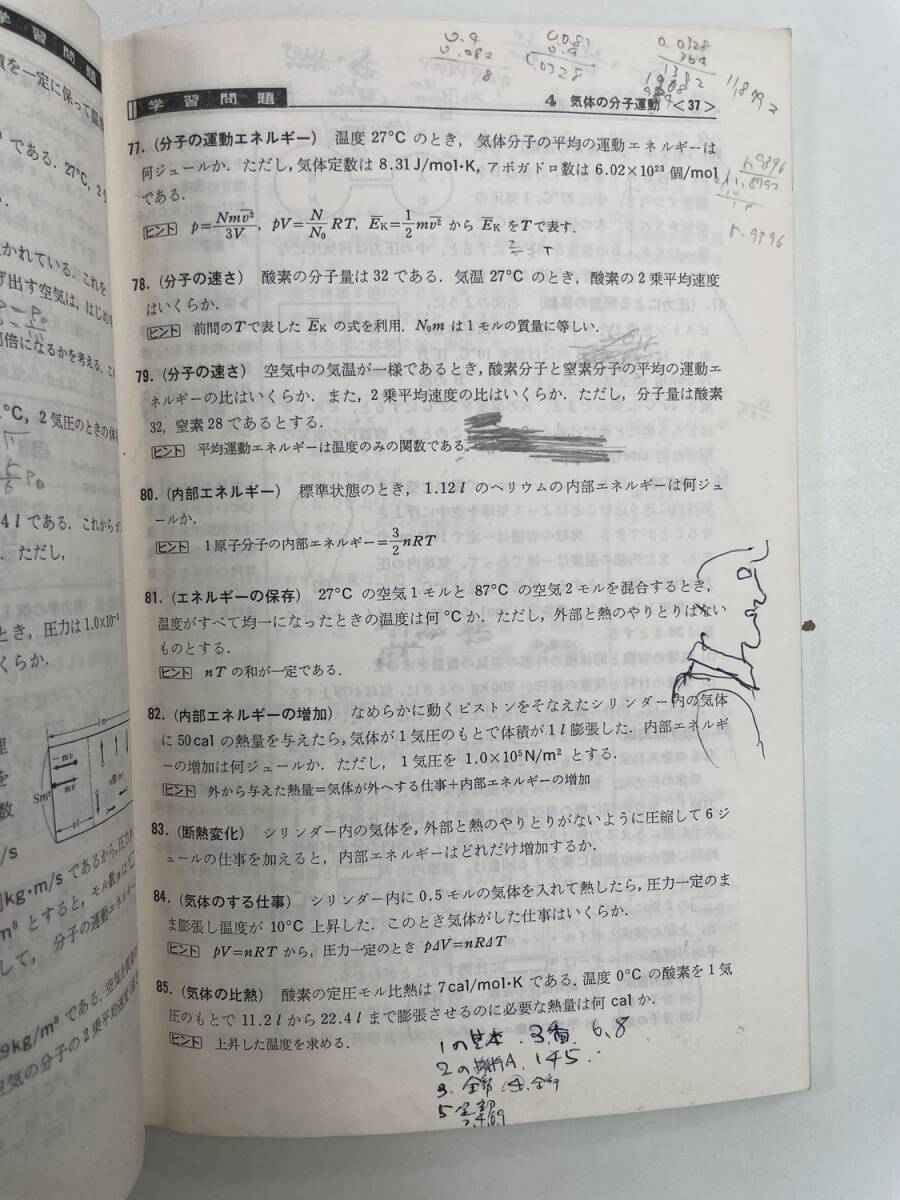 学習問題
質を一定に保って温度
である. 27°C, 2
かれている. これを
げ出す空気は, はじめ
何倍になるかを考える. こ
°C, 2気圧のときの体
4lである. これから
. ただし,
とき, 圧力は1.0×10⁻³
くらか.
Sm²
mv
数
/s
kg·m/s であるから, 圧力
m³ とすると, モル数
して, 分子の運動エネル
9kg/m³ である. 空気
空気の分子の2乗平均速度
0.4
0.082
8
0.082
0.4
0.0328
0.0328
364
1382
1968
11,8992
5.9396
学習問題
4 気体の分子運動 <37>
77. (分子の運動エネルギー) 温度 27°C のとき, 気体分子の平均の運動エネルギーは
何ジュールか. ただし, 気体定数は 8.31 J/mol·K, アボガドロ数は 6.02×10²³ 個/mol
である.
ヒント p=Nmv̄²/3V, pV=N/N₀ RT, ĒK=1/2 mv̄² から ĒK をTで表す.
78. (分子の速さ) 酸素の分子量は 32 である. 気温 27°C のとき, 酸素の2乗平均速度
はいくらか.
ヒント 前問のTで表した ĒK の式を利用. N₀m は1モルの質量に等しい.
79. (分子の速さ) 空気中の気温が一様であるとき, 酸素分子と窒素分子の平均の運動エ
ネルギーの比はいくらか. また, 2乗平均速度の比はいくらか. ただし, 分子量は酸素
32, 窒素 28 であるとする.
ヒント 平均運動エネルギーは温度のみの関数である.
80. (内部エネルギー) 標準状態のとき, 1.12 l のヘリウムの内部エネルギーは何ジュ
ールか.
ヒント 1原子分子の内部エネルギー=3/2 nRT
81. (エネルギーの保存) 27°C の空気1モルと 87°C の空気2モルを混合するとき,
温度がすべて均一になったときの温度は何 °C か. ただし, 外部と熱のやりとりはない
ものとする.
ヒント nTの和が一定である.
82. (内部エネルギーの増加) なめらかに動くピストンをそなえたシリンダー内の気体
に 50cal の熱量を与えたら, 気体が1気圧のもとで体積が 1l 膨張した. 内部エネルギ
ーの増加は何ジュールか. ただし, 1気圧を 1.0×10⁵N/m² とする.
ヒント 外から与えた熱量=気体が外へする仕事+内部エネルギーの増加
83. (断熱変化) シリンダー内の気体を, 外部と熱のやりとりがないように圧縮して6ジ
ュールの仕事を加えると, 内部エネルギーはどれだけ増加するか.
84. (気体のする仕事) シリンダー内に 0.5 モルの気体を入れて熱したら, 圧力一定のま
ま膨張し温度が 10°C 上昇した. このとき気体がした仕事はいくらか.
ヒント pV=nRT から, 圧力一定のとき pΔV=nRΔT
85. (気体の比熱) 酸素の定圧モル比熱は 7cal/mol·K である. 温度 0°C の酸素を1気
圧のもとで 11.2l から 22.4l まで膨張させるのに必要な熱量は何 cal か.
ヒント 上昇した温度を求める.
1の基本. 3番. 6,8
2の A. 145.
3. 全部 ④. 全部
5 全部